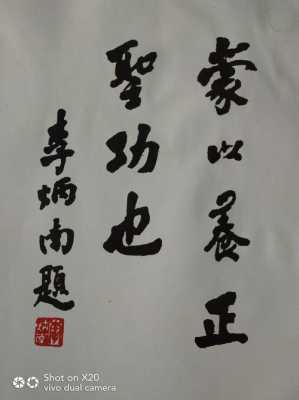 蒙以養正
聖功也
李炳南題
Shot on X20
vivo dual camera